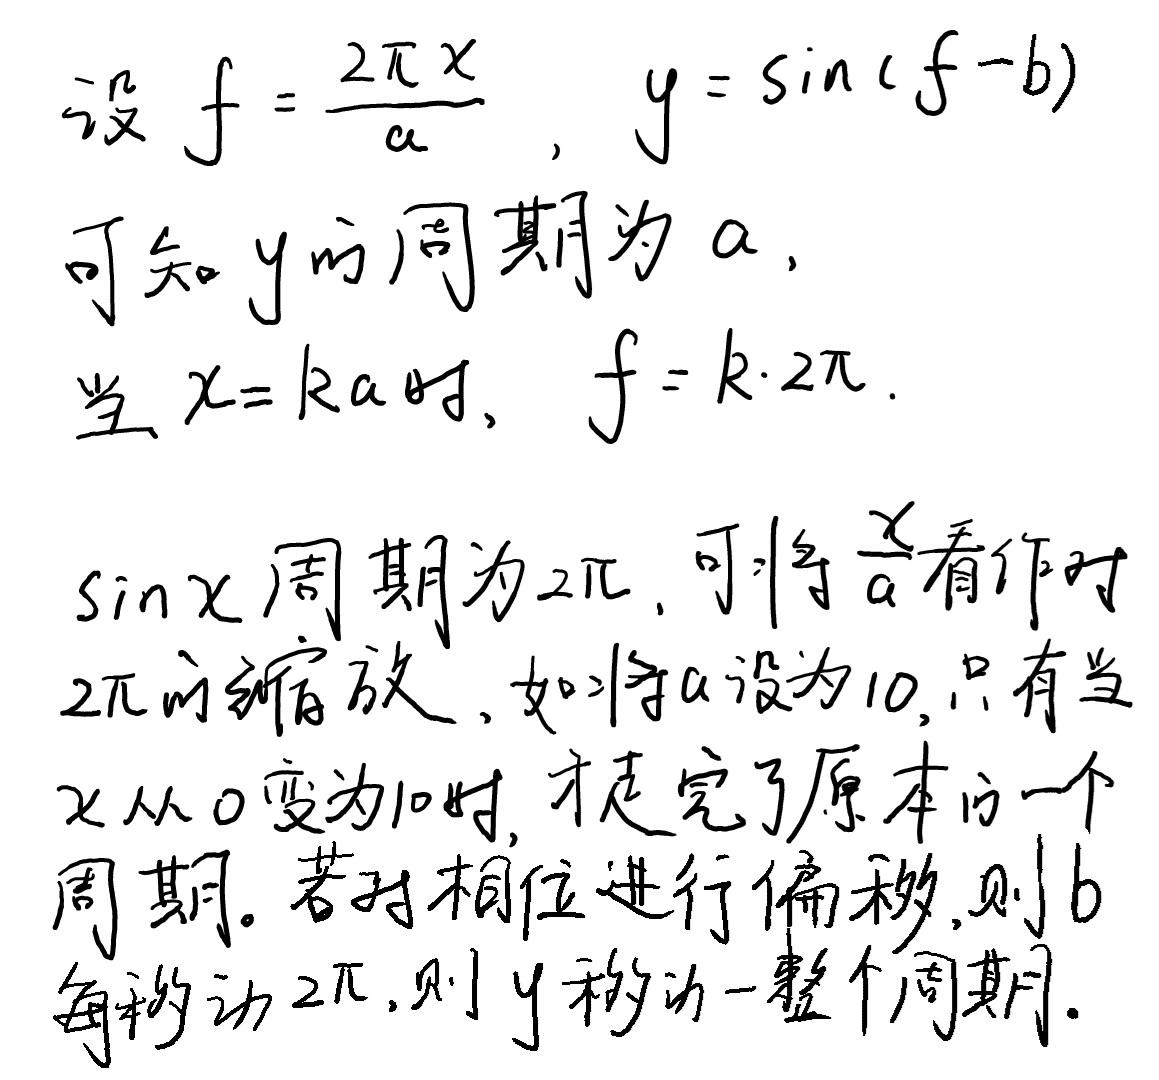 设 f = \frac{2πx}{a}, y = sin(f-b)
可知 y的周期为 a,
当 x=ka时, f=k·2π.
sinx周期为2π,可将\frac{x}{a}看作对
2π的缩放,如将a设为10,只有当
x从0变为10时,才走完了原本的一个
周期。若对相位进行偏移,则b
每移动2π,则y移动一整个周期.